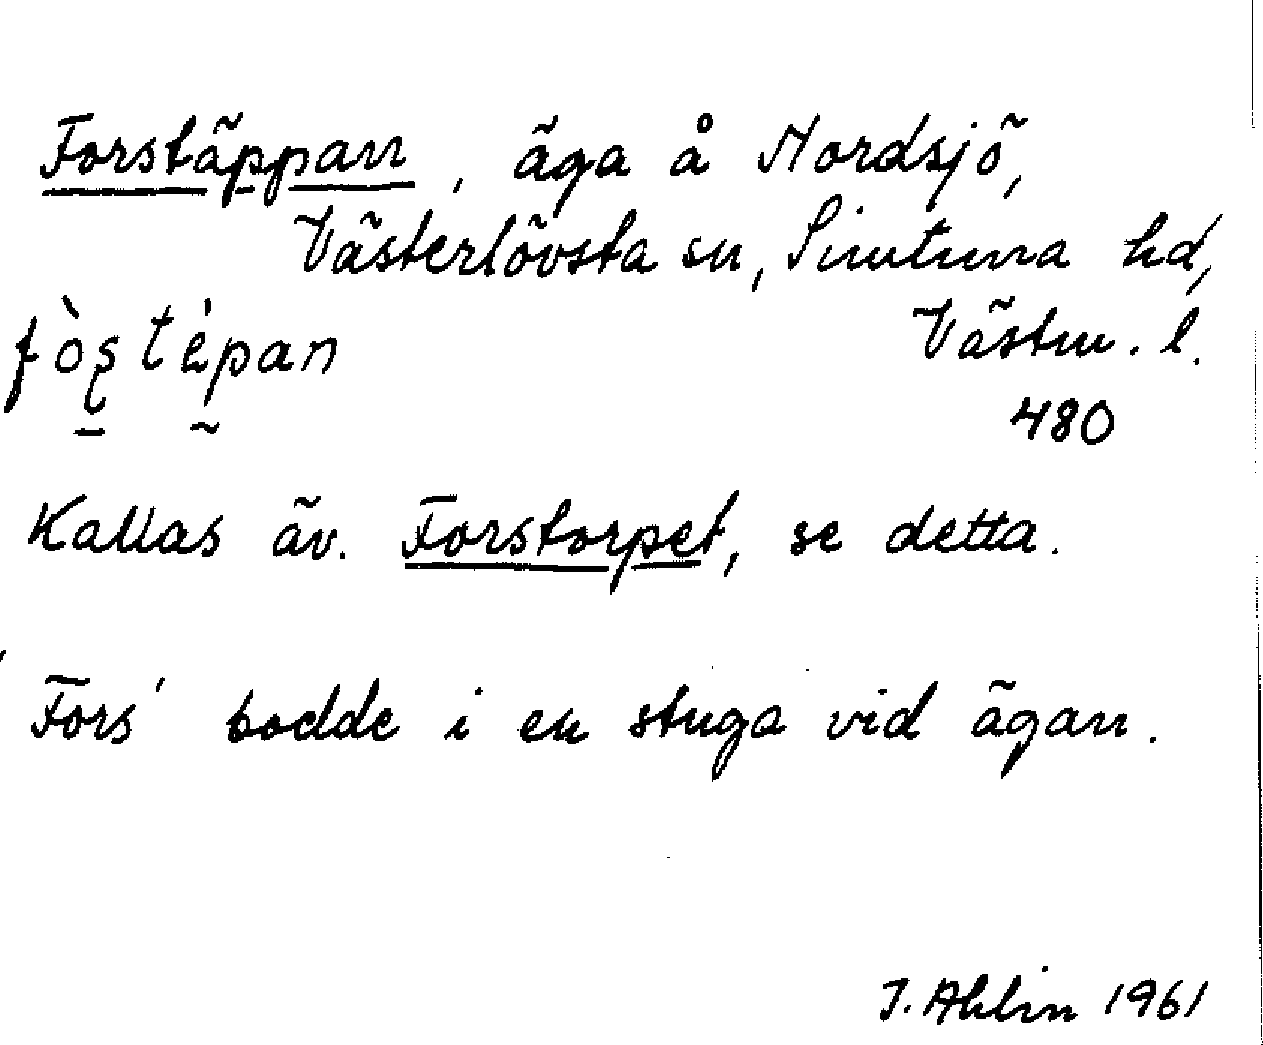 Forstäppan, äga å Nordsjö,
Västerlövsta sn, Simtuna hd,
Västm. l.
fòs̨tèpan
480
Kallas äv. Forstorpet, se detta.
'Fors' bodde i en stuga vid ägan.
I. Ahlin 1961